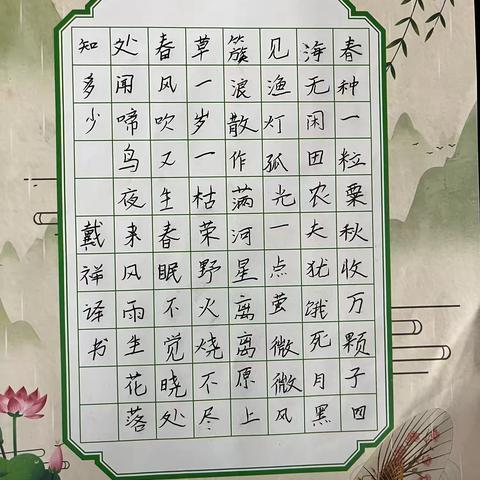 春种一粒粟秋收万颗子四
海无闲田农夫犹饿死月黑
见渔灯孤光一点萤微微风
簇浪散作满河星离离原上
草一岁一枯荣野火烧不尽
春风吹又生春眠不觉晓处
处闻啼鸟夜来风雨生花落
知多少 戴祥译书